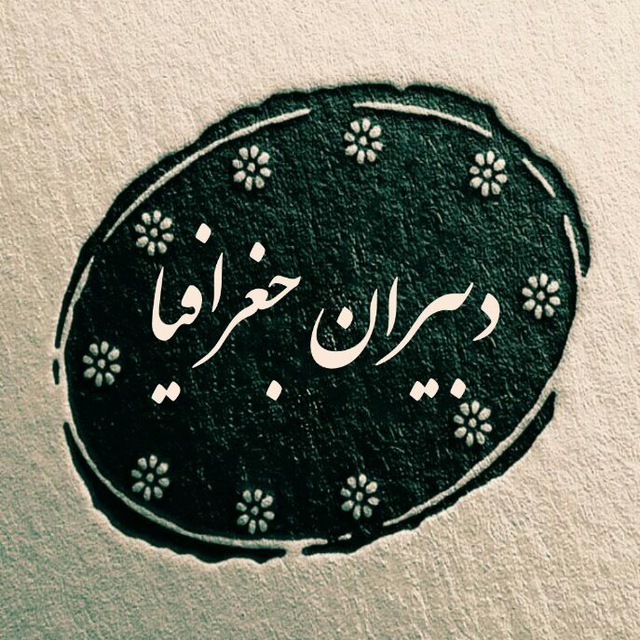 دبیران جغرافیا